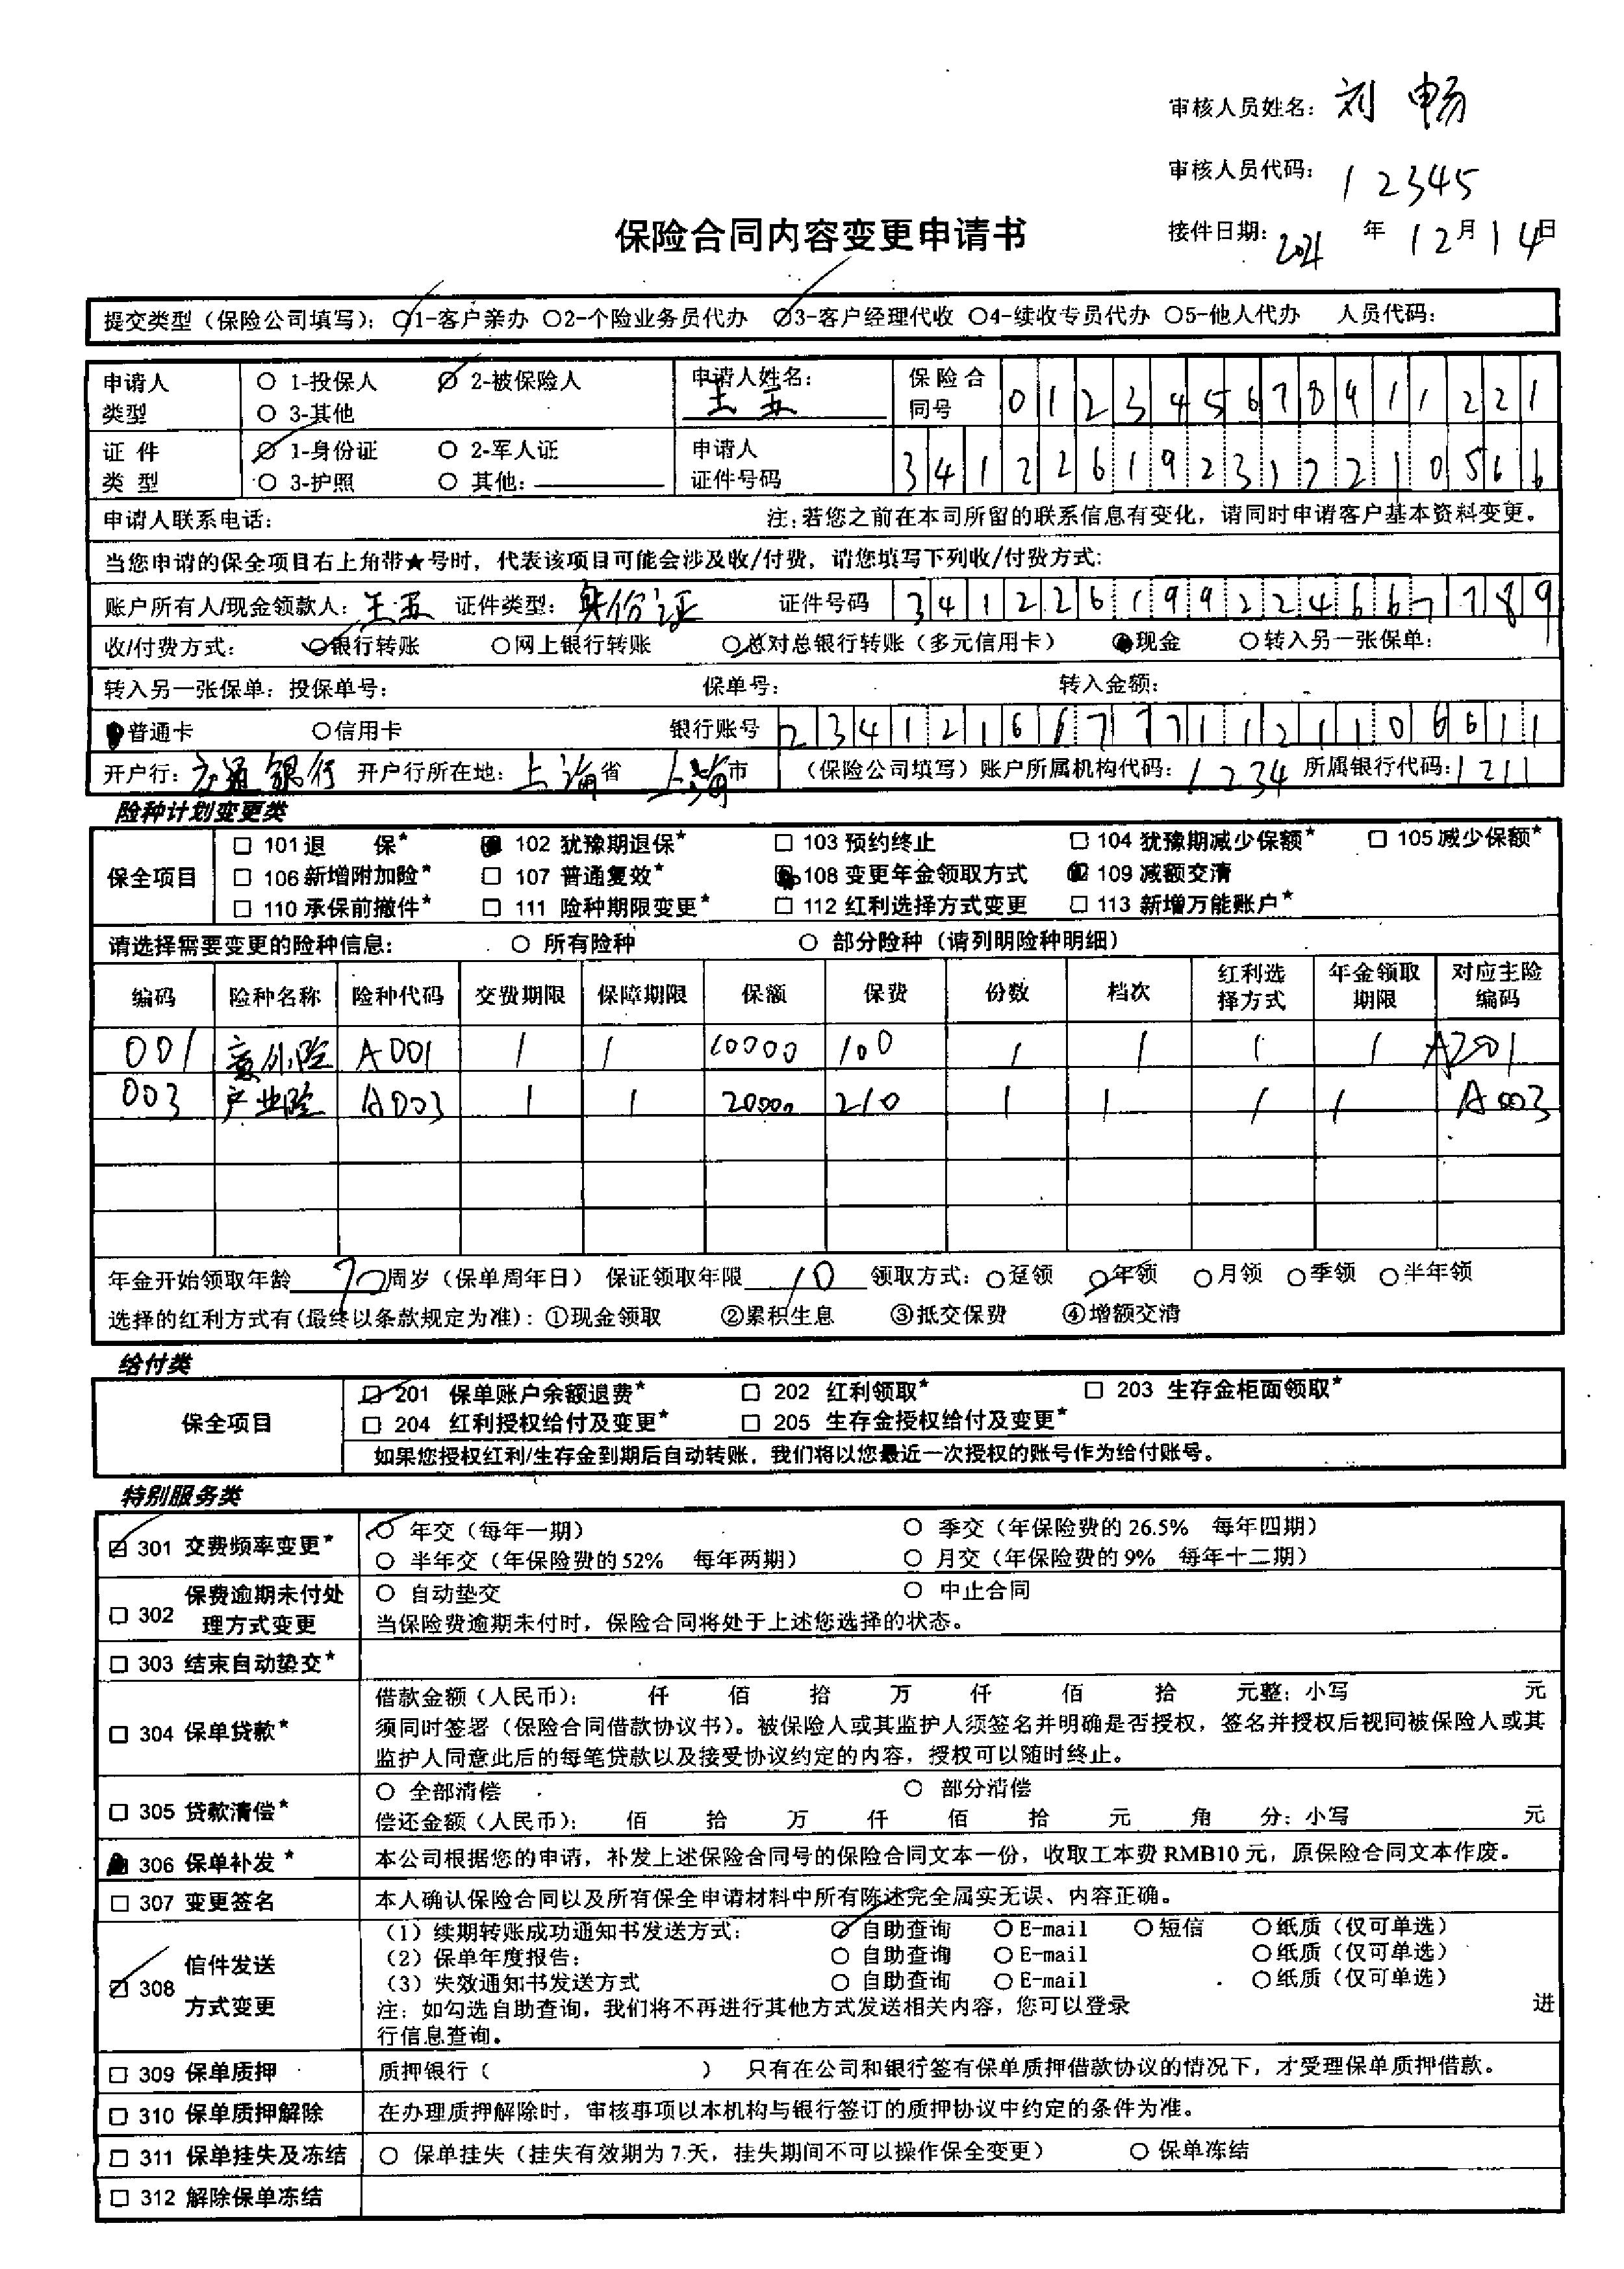 审核人员姓名：刘畅
审核人员代码：12345
接件日期：2021 年 12月14日
保险合同内容变更申请书
提交类型（保险公司填写）：○1-客户亲办 ○2-个险业务员代办 ○3-客户经理代收 ○4-续收专员代办 ○5-他人代办 人员代码：
申请人类型 ○ 1-投保人 ○ 2-被保险人 ○ 3-其他 申请人姓名：王五 保险合同号 012345678911221
证件类型 ○ 1-身份证 ○ 2-军人证 ○ 3-护照 ○ 其他： 申请人证件号码 341226192312210566
申请人联系电话： 注：若您之前在本司所留的联系信息有变化，请同时申请客户基本资料变更。
当您申请的保全项目右上角带★号时，代表该项目可能会涉及收/付费，请您填写下列收/付费方式：
账户所有人/现金领款人：王五 证件类型：身份证 证件号码 341226199224667789
收/付费方式： ○银行转账 ○网上银行转账 ○总对总银行转账（多元信用卡） ●现金 ○转入另一张保单：
转入另一张保单：投保单号： 保单号： 转入金额：
●普通卡 ○信用卡 银行账号 234121667771121106611
开户行：交通银行 开户行所在地：上海省 上海市 （保险公司填写）账户所属机构代码：1234 所属银行代码：1211
险种计划变更类
保全项目
□ 101 退 保* ■ 102 犹豫期退保* □ 103 预约终止 □ 104 犹豫期减少保额* □ 105 减少保额*
□ 106 新增附加险* □ 107 普通复效* ■ 108 变更年金领取方式 ■ 109 减额交清
□ 110 承保前撤件* □ 111 险种期限变更* □ 112 红利选择方式变更 □ 113 新增万能账户*
请选择需要变更的险种信息： ○ 所有险种 ○ 部分险种（请列明险种明细）
编码 险种名称 险种代码 交费期限 保障期限 保额 保费 份数 档次 红利选择方式 年金领取期限 对应主险编码
001 意外险 A001 1 1 10000 100 1 1 1 1 A201
003 产业险 A003 1 1 20000 210 1 1 1 1 A003
年金开始领取年龄 70 周岁（保单周年日） 保证领取年限 10 领取方式：○趸领 ○年领 ○月领 ○季领 ○半年领
选择的红利方式有(最终以条款规定为准)：①现金领取 ②累积生息 ③抵交保费 ④增额交清
给付类
保全项目
☑ 201 保单账户余额退费* □ 202 红利领取* □ 203 生存金柜面领取*
□ 204 红利授权给付及变更* □ 205 生存金授权给付及变更*
如果您授权红利/生存金到期后自动转账，我们将以您最近一次授权的账号作为给付账号。
特别服务类
☑ 301 交费频率变更* ○ 年交（每年一期） ○ 季交（年保险费的 26.5% 每年四期）
○ 半年交（年保险费的 52% 每年两期） ○ 月交（年保险费的 9% 每年十二期）
□ 302 保费逾期未付处理方式变更 ○ 自动垫交 ○ 中止合同
当保险费逾期未付时，保险合同将处于上述您选择的状态。
□ 303 结束自动垫交*
□ 304 保单贷款* 借款金额（人民币）： 仟 佰 拾 万 仟 佰 拾 元整：小写 元
须同时签署（保险合同借款协议书）。被保险人或其监护人须签名并明确是否授权，签名并授权后视同被保险人或其
监护人同意此后的每笔贷款以及接受协议约定的内容，授权可以随时终止。
□ 305 贷款清偿* ○ 全部清偿 ○ 部分清偿
偿还金额（人民币）： 佰 拾 万 仟 佰 拾 元 角 分：小写 元
■ 306 保单补发* 本公司根据您的申请，补发上述保险合同号的保险合同文本一份，收取工本费 RMB10 元，原保险合同文本作废。
□ 307 变更签名 本人确认保险合同以及所有保全申请材料中所有陈述完全属实无误、内容正确。
☑ 308 信件发送方式变更 （1）续期转账成功通知书发送方式： ○ 自助查询 ○ E-mail ○ 短信 ○ 纸质（仅可单选）
（2）保单年度报告： ○ 自助查询 ○ E-mail ○ 纸质（仅可单选）
（3）失效通知书发送方式 ○ 自助查询 ○ E-mail ○ 纸质（仅可单选）
注：如勾选自助查询，我们将不再进行其他方式发送相关内容，您可以登录 进
行信息查询。
□ 309 保单质押 质押银行（ ） 只有在公司和银行签有保单质押借款协议的情况下，才受理保单质押借款。
□ 310 保单质押解除 在办理质押解除时，审核事项以本机构与银行签订的质押协议中约定的条件为准。
□ 311 保单挂失及冻结 ○ 保单挂失（挂失有效期为 7 天，挂失期间不可以操作保全变更） ○ 保单冻结
□ 312 解除保单冻结